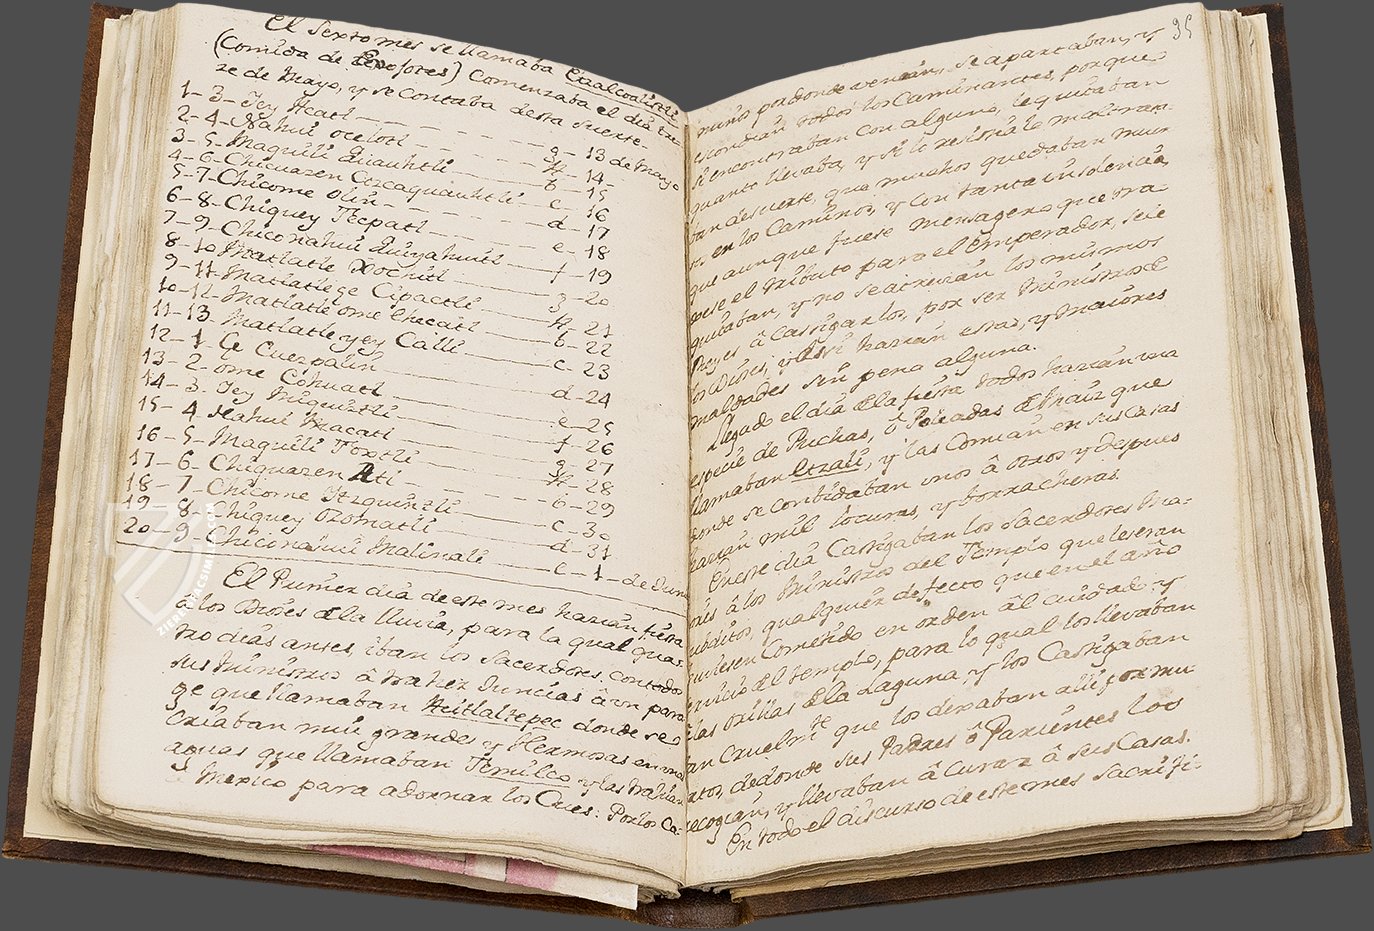 El Sexto mes se llamaba Etzalcoalistli
(Comida de Etxofores) Comenzaba el dia tre-
ze de Mayo, y se Contaba desta suerte-
1-3- Jey Acatl - g- 13 de Mayo
2-4- Nahui ocelotl - A- 14
3-5- Maquili Quauhtli - b- 15
4-6- Chicuazen Cozcaquauhtli - c- 16
5-7- Chicome Olin - d- 17
6-8- Chiquey Tecpatl - e- 18
7-9- Chiconahui Quiyahuitl - f- 19
8-10 Matlatle Xochitl - g- 20
9-11- Matlatlege Cipactli - A- 21
10-12- Matlatle ome Ehecatl - b- 22
11-13- Matlatleyey Calli - c- 23
12-1- Ce Cuezpalin - d- 24
13-2- ome Cohuatl - e- 25
14-3- Jey Miquiztli - f- 26
15-4- Nahui Mazatl - g- 27
16-5- Maquili Toxtli - A- 28
17-6- Chiquazen Atl - b- 29
18-7- Chicome Itzquintli - c- 30
19-8- Chiquey Ozomatli - d- 31
20-9- Chiconahui Malinali - e- 1- de Juni
El Primer dia de este mes hazian fiesta
a los Dioses de la lluvia, para la qual qua-
tro dias antes, iban los Sacerdotes, con todos
sus Ministros â traher Juncias â vn para-
ge que llamaban Azitlaltepec donde se
Criaban mui grandes y Hermosas en vnas
aguas que llamaban Temilco y las trahian
a Mexico para adornar los Cues: Por los Ca-
95
minos pa donde venian, se apartaban, y
escondian todos los Caminantes, porque
si encontraban con alguno, le quitaban
quanto llevaba, y si lo resistia le maltrata-
ban de suerte, que muchos quedaban muer
tos en los Caminos, y con tanta insolencia,
que aunque fuese mensagero que tra
gese el tributo para el Emperador, se le
quitaban, y no se atrevian los mismos
Reyes â Castigarlos, por ser Ministros de
los Dioses, y Asi hazian estas, y maiores
maldades sin pena alguna.
Llegado el dia de la fiesta todos hazian una
especie de Puchas, ô Poleadas de Maiz que
llamaban Etzali, y las Comian en sus Casas
donde se combidaban vnos â otros y despues
hazian mil locuras, y borracheras.
En este dia Castigaban los Sacerdotes Ma-
ores â los Ministros del Templo que les eran
subditos, qualquier defecto que en el año
huviesen Cometido en orden âl cuidado y
servicio del templo, para lo qual los llevaban
a las orillas de la Laguna y los Castigaban
tan cruelmte que los dexaban alli por mu
ertos, de donde sus Padres ô Parientes los
recogian, y llevaban â curar â sus Casas.
En todo el discurso de este mes sacrifi-
ZIEREIS FACSIMILES.COM